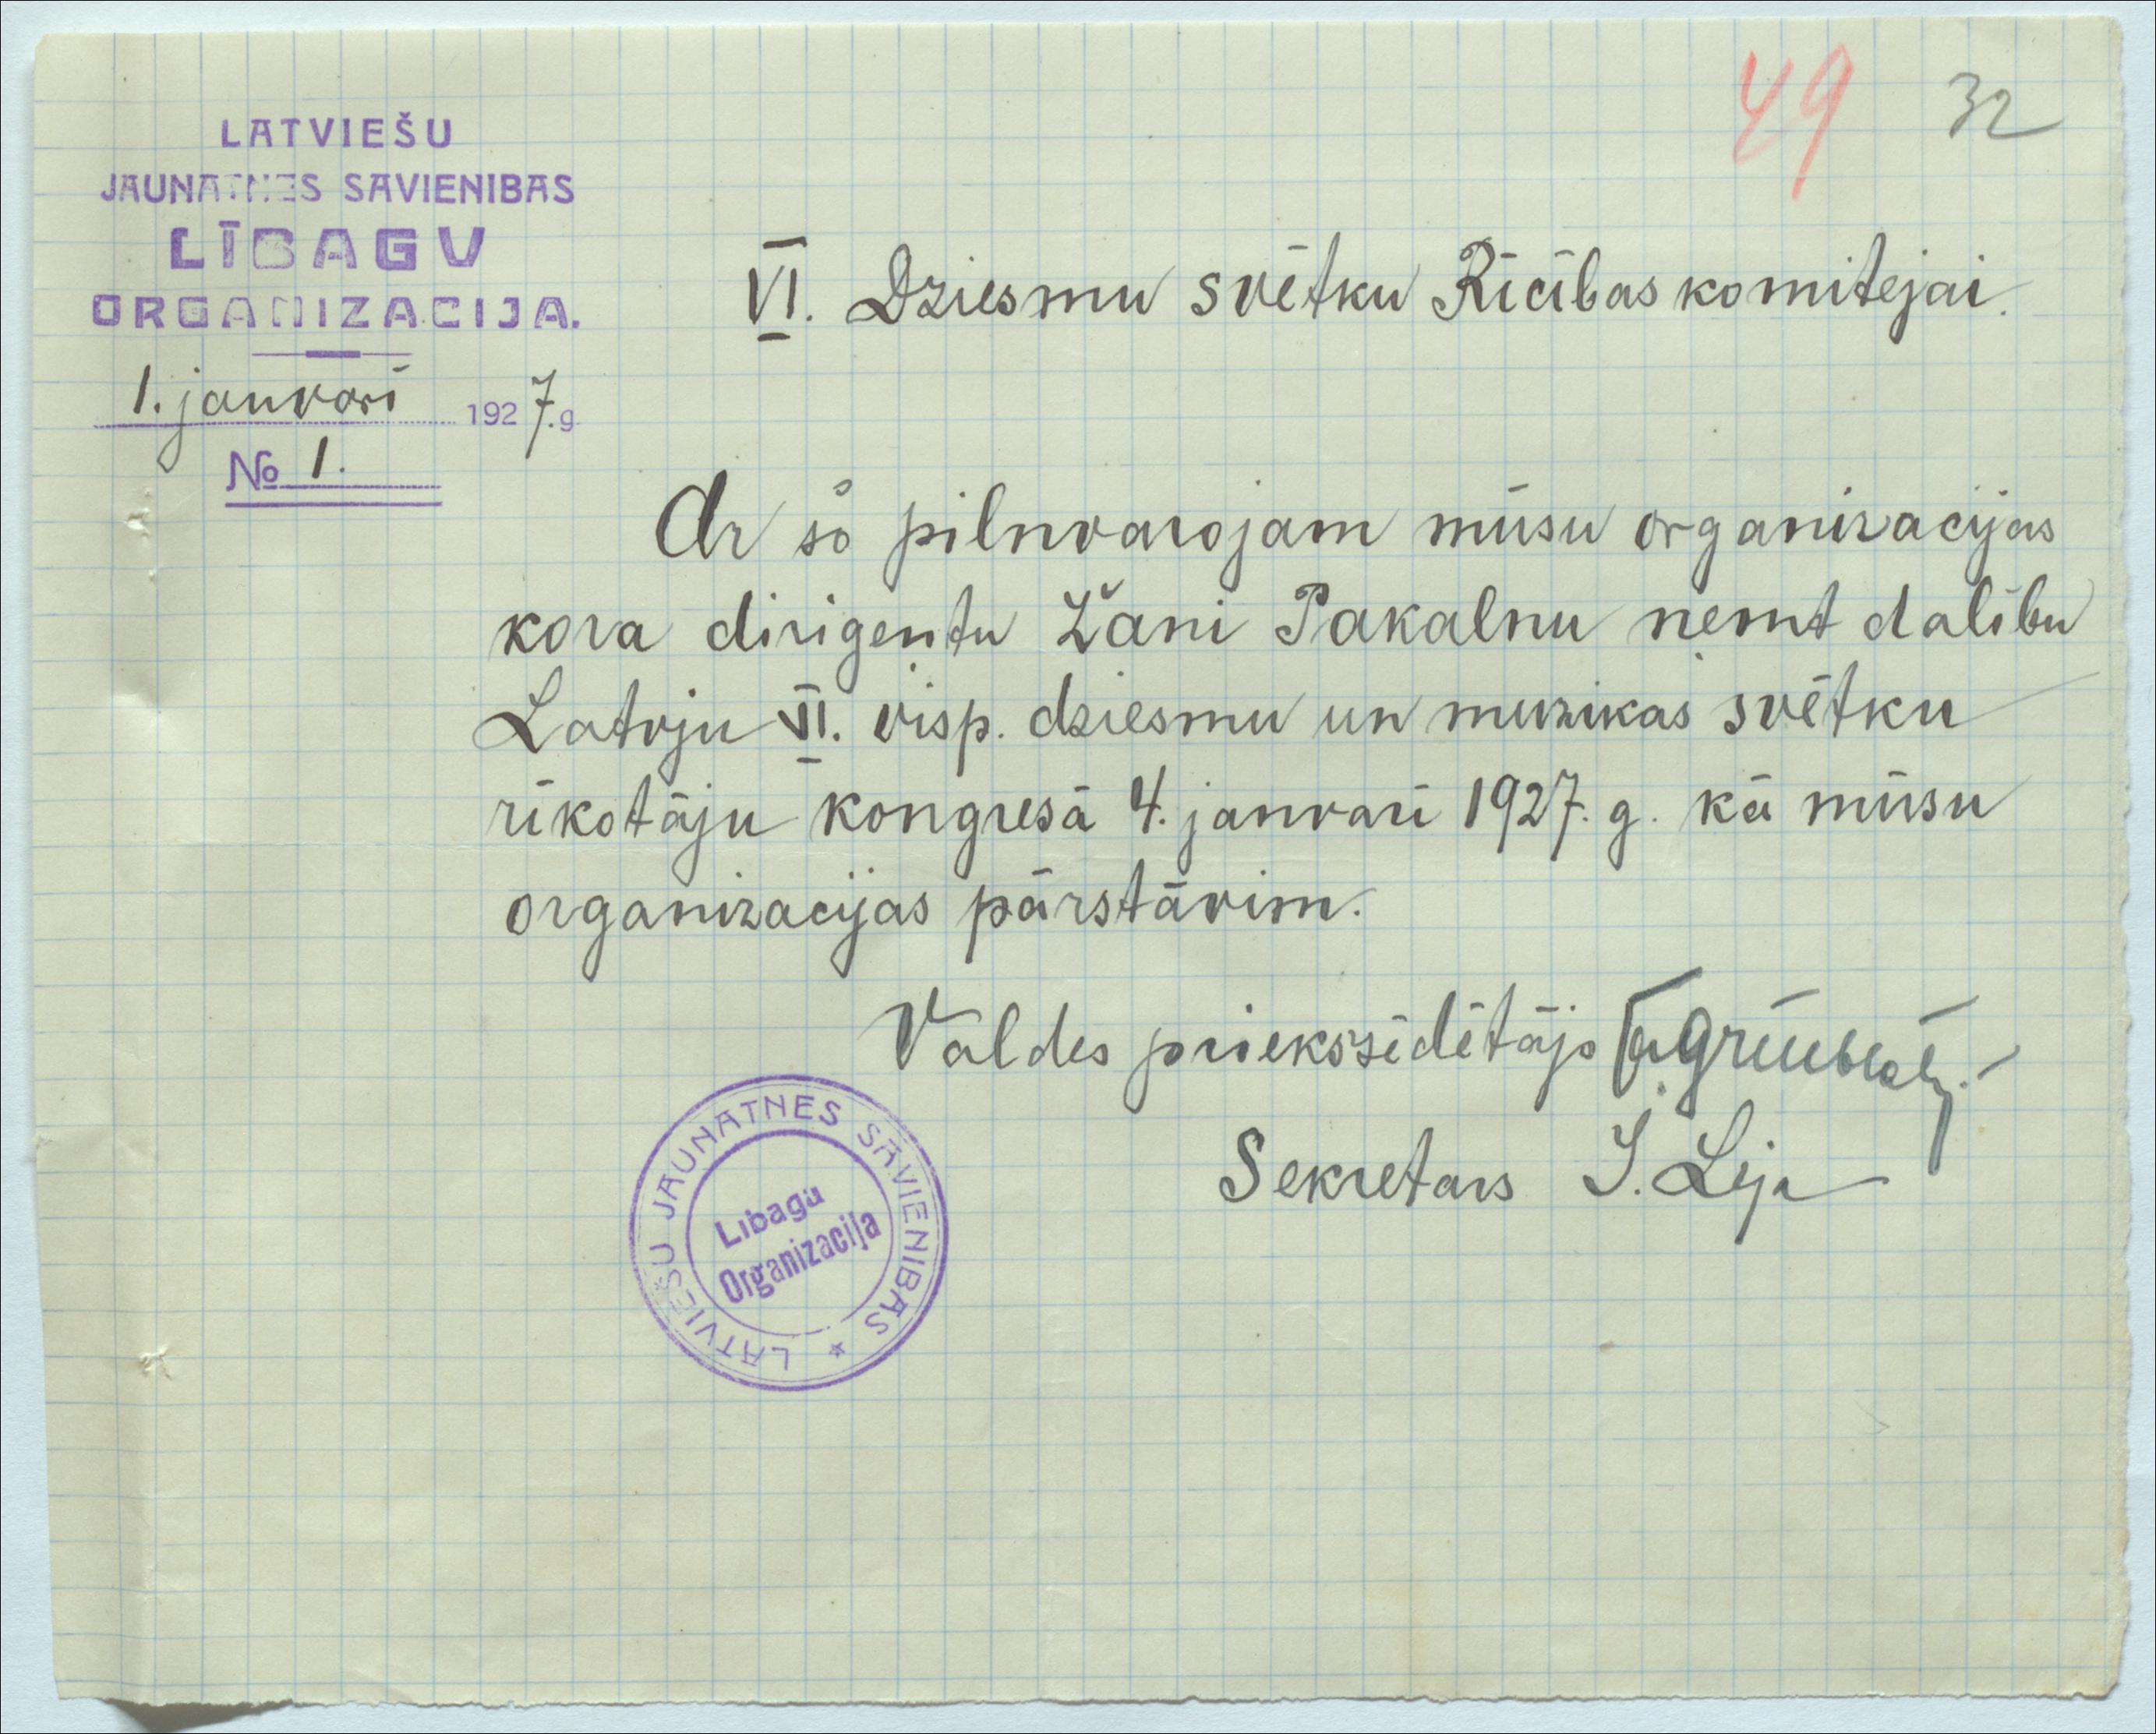 49 32
LATVIEŠU
JAUNATNES SAVIENIBAS
LĪBAGU
ORGANIZACIJA.
1. janvarī 1927. g.
№ 1.
VI. Dziesmu svētku Rīcības komitejai.
Ar šo pilnvarojam mūsu organizacijas
kora dirigentu Žani Pakalnu ņemt dalību
Latvju VI. visp. dziesmu un muzikas svētku
rīkotāju kongresā 4. janvarī 1927. g. kā mūsu
organizacijas pārstāvim.
Valdes priekšsēdētājs
Sekretars J. Leja
LATVIEŠU JAUNATNES SAVIENIBAS *
Lībagu
Organizacija